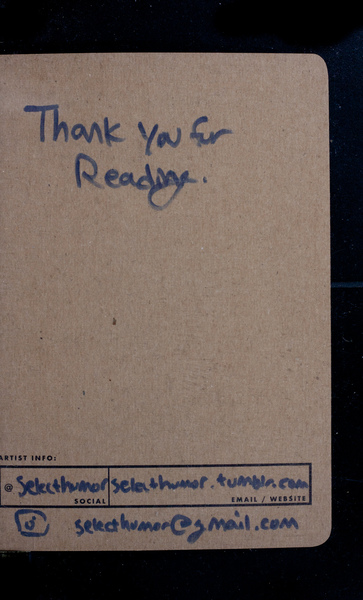 Thank You for
Reading.
ARTIST INFO:
@ selecthumor selecthumor.tumblr.com
SOCIAL EMAIL / WEBSITE
selecthumor@gmail.com